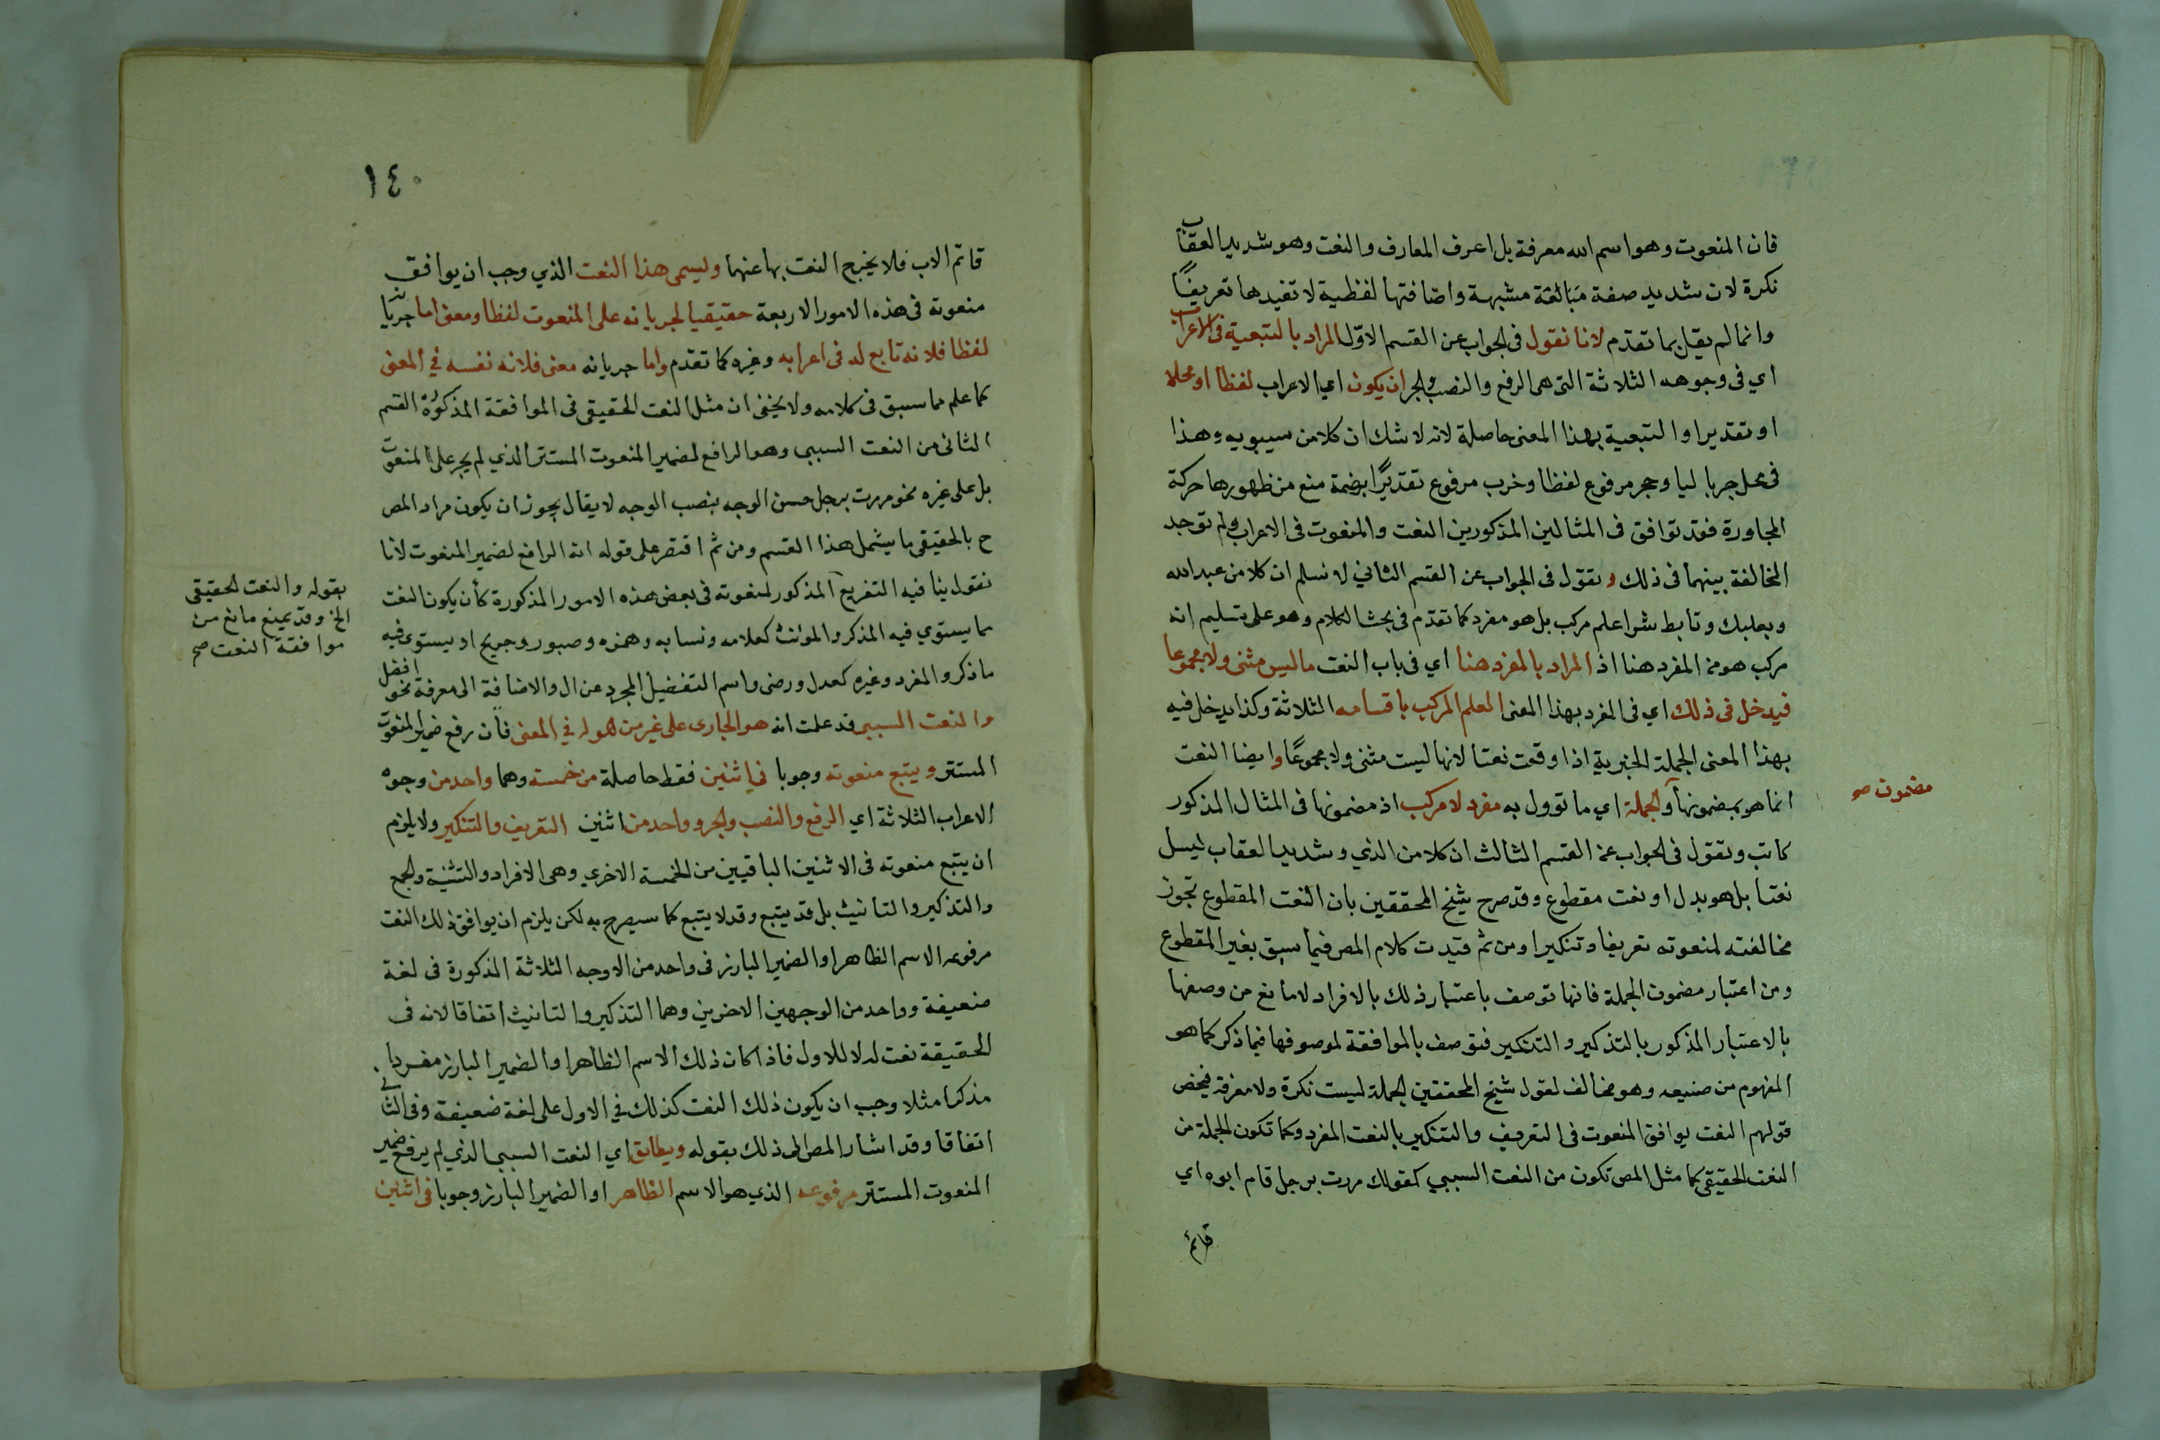 فان المنعوت وهو اسم الله معرفة بل اعرف المعارف والنعت وهو شديد العقاب
نكرة لان شديد صفة مبالغة مشبهة واضافتها لفظية لا تفيدها تعريفًا
وانما لم يقل بما تقدم لانا نقول فى الجواب عن القسم الاوّل المراد بالتبعية فى الاعراب
اي فى وجوهه الثلاثة التى هى الرفع والنصب والجر ان يكون اي الاعراب لفظا او محلا
او تقديرا والتبعية بهذا المعنى حاصلة لانه لا شك ان كلا من سيبويه وهذا
فى محل جر بالياء وحجر مرفوع لفظا وخرب مرفوع تقديرًا بضمة منع من ظهورها حركة
المجاورة فقد توافق فى المثالين المذكورين النعت والمنعوت فى الاعراب ولم توجد
المخالفة بينهما فى ذلك و نقول فى الجواب عن القسم الثاني لا نسلم ان كلا من عبد الله
وبعلبك وتابط شرا علم مركب بل هو مفرد كما تقدم فى بحث الكلام وهو على تسليم انه
مركب هو من المفرد هنا اذ المراد بالمفرد هنا اي فى باب النعت ما ليس مثنى ولا مجموعا
فيدخل فى ذلك اي فى المفرد بهذا المعنى العلم المركب باقسامه الثلاثة وكذا يدخل فيه
بهذا المعنى الجملة الخبرية اذا وقعت نعتا لانها ليست مثنى ولا مجموعًا وايضا النعت
انما هو بمضمونها والجملة اي ما تؤول به مفرد لا مركب اذ مضمونها فى المثال المذكور
مضمون صح
كاتب ونقول فى الجواب عن القسم الثالث ان كلا من الذي وشديد العقاب ليس
نعتا بل هو بدل او نعت مقطوع وقد صرح شيخ المحققين بان النعت المقطوع تجوز
مخالفته لمنعوته تعريفا وتنكيرا ومن ثم قيدت كلام المص فيما سبق بغير المقطوع
ومن اعتبار مضمون الجملة فانها توصف باعتبار ذلك بالافراد لا مانع من وصفها
بالاعتبار المذكور بالتذكير والتنكير فتوصف بالموافقة لموصوفها فيما ذكر كما هو
المفهوم من صنيعه وهو مخالف لقول شيخ المحققين الجملة ليست نكرة ولا معرفة فيخص
قولهم النعت يوافق المنعوت فى التعريف والتنكير بالنعت المفرد وكما تكون الجملة من
النعت الحقيقى كما مثل المص تكون من النعت السببي كقولك مررت برجل قام ابوه اي
قائم
١٤٠
قائم الاب فلا يخرج النعت بها عنها وليسمى هذا النعت الذي وجب ان يوافق
منعوته فى هذه الامور الاربعة حقيقيا لجريانه على المنعوت لفظا ومعنى اما جريانه
لفظا فلانه تابع له فى اعرابه وغيره كما تقدم واما جريانه معنى فلانه نفسه في المعنى
كما علم مما سبق فى كلامه ولا يخفى ان مثل النعت الحقيقى فى الموافقة المذكورة القسم
الثانى من النعت السببى وهو الرافع لضمير المنعوت المستتر الذي لم يجر على المنعوت
بل على غيره نحو مررت برجل حسن الوجه بنصب الوجه لا يقال يجوز ان يكون مراد المص
ح بالحقيقى ما يشمل هذا القسم ومن ثم اقتصر على قوله انه الرافع لضمير المنعوت لانا
نقول ينافيه التفريع المذكور لمنعوته فى بعض هذه الامور المذكورة كأن يكون النعت
بقوله والنعت الحقيقى
الخ وقد يمنع مانع من
موافقة النعت صح
مما يستوي فيه المذكر والمؤنث كعلامه ونسابه وهمزه وصبور وجريح او يستوى فيه
ما ذكر والمفرد وغيره كعدل ورضى واسم التفضيل المجرد عن ال والاضافة الى معرفة نحو افضل
والنعت السببى قد علمت انه هو الجارى على غير من هو له في المعنى فان رفع ضمير المنعوت
المستتر ويتبع منعوته وجوبا في اثنين فقط حاصلة من خمسه وهما واحد من وجوه
الاعراب الثلاثة اي الرفع والنصب والجر وواحد من اثنين التعريف والتنكير ولا يلزم
ان يتبع منعوته فى الاثنين الباقيين من الخمسة الاخري وهى الافراد والتثنية والجمع
والتذكير والتانيث بل قد يتبع وقد لا يتبع كما سيصرح به لكن يلزم ان يوافق ذلك النعت
مرفوعه الاسم الظاهر او الضمير البارز فى واحد من الاوجه الثلاثة المذكورة فى لغة
ضعيفة وواحد من الوجهين الاخيرين وهما التذكير والتانيث اتفاقا لانه فى
الحقيقة نعت له لا للاول فاذا كان ذلك الاسم الظاهر او الضمير البارز مفردا
مذكرا مثلا وجب ان يكون ذلك النعت كذلك في الاول على لغة ضعيفة وفى الثانى
اتفاقا وقد اشار المص الى ذلك بقوله ويطابق اي النعت السببى الذي لم يرفع ضمير
المنعوت المستتر مرفوعه الذي هو الاسم الظاهر او الضمير البارز وجوبا فى اثنين